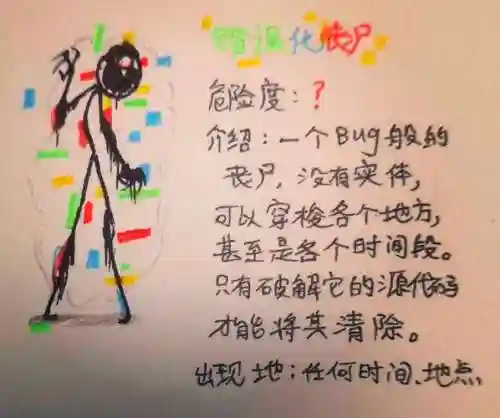 源化丧尸
危险度：？
介绍：一个Bug般的
丧尸，没有实体，
可以穿梭各个地方，
甚至是各个时间段。
只有破解它的源代码
才能将其清除。
出现地：任何时间、地点